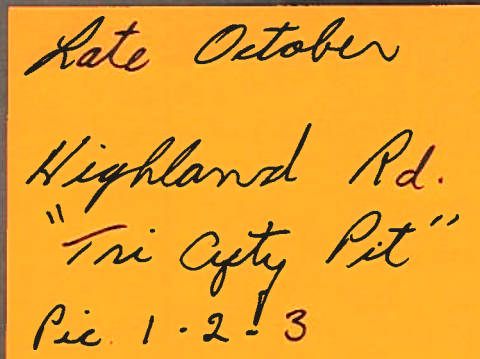 Late October
Highland Rd.
"Tri City Pit"
Pic 1-2-3